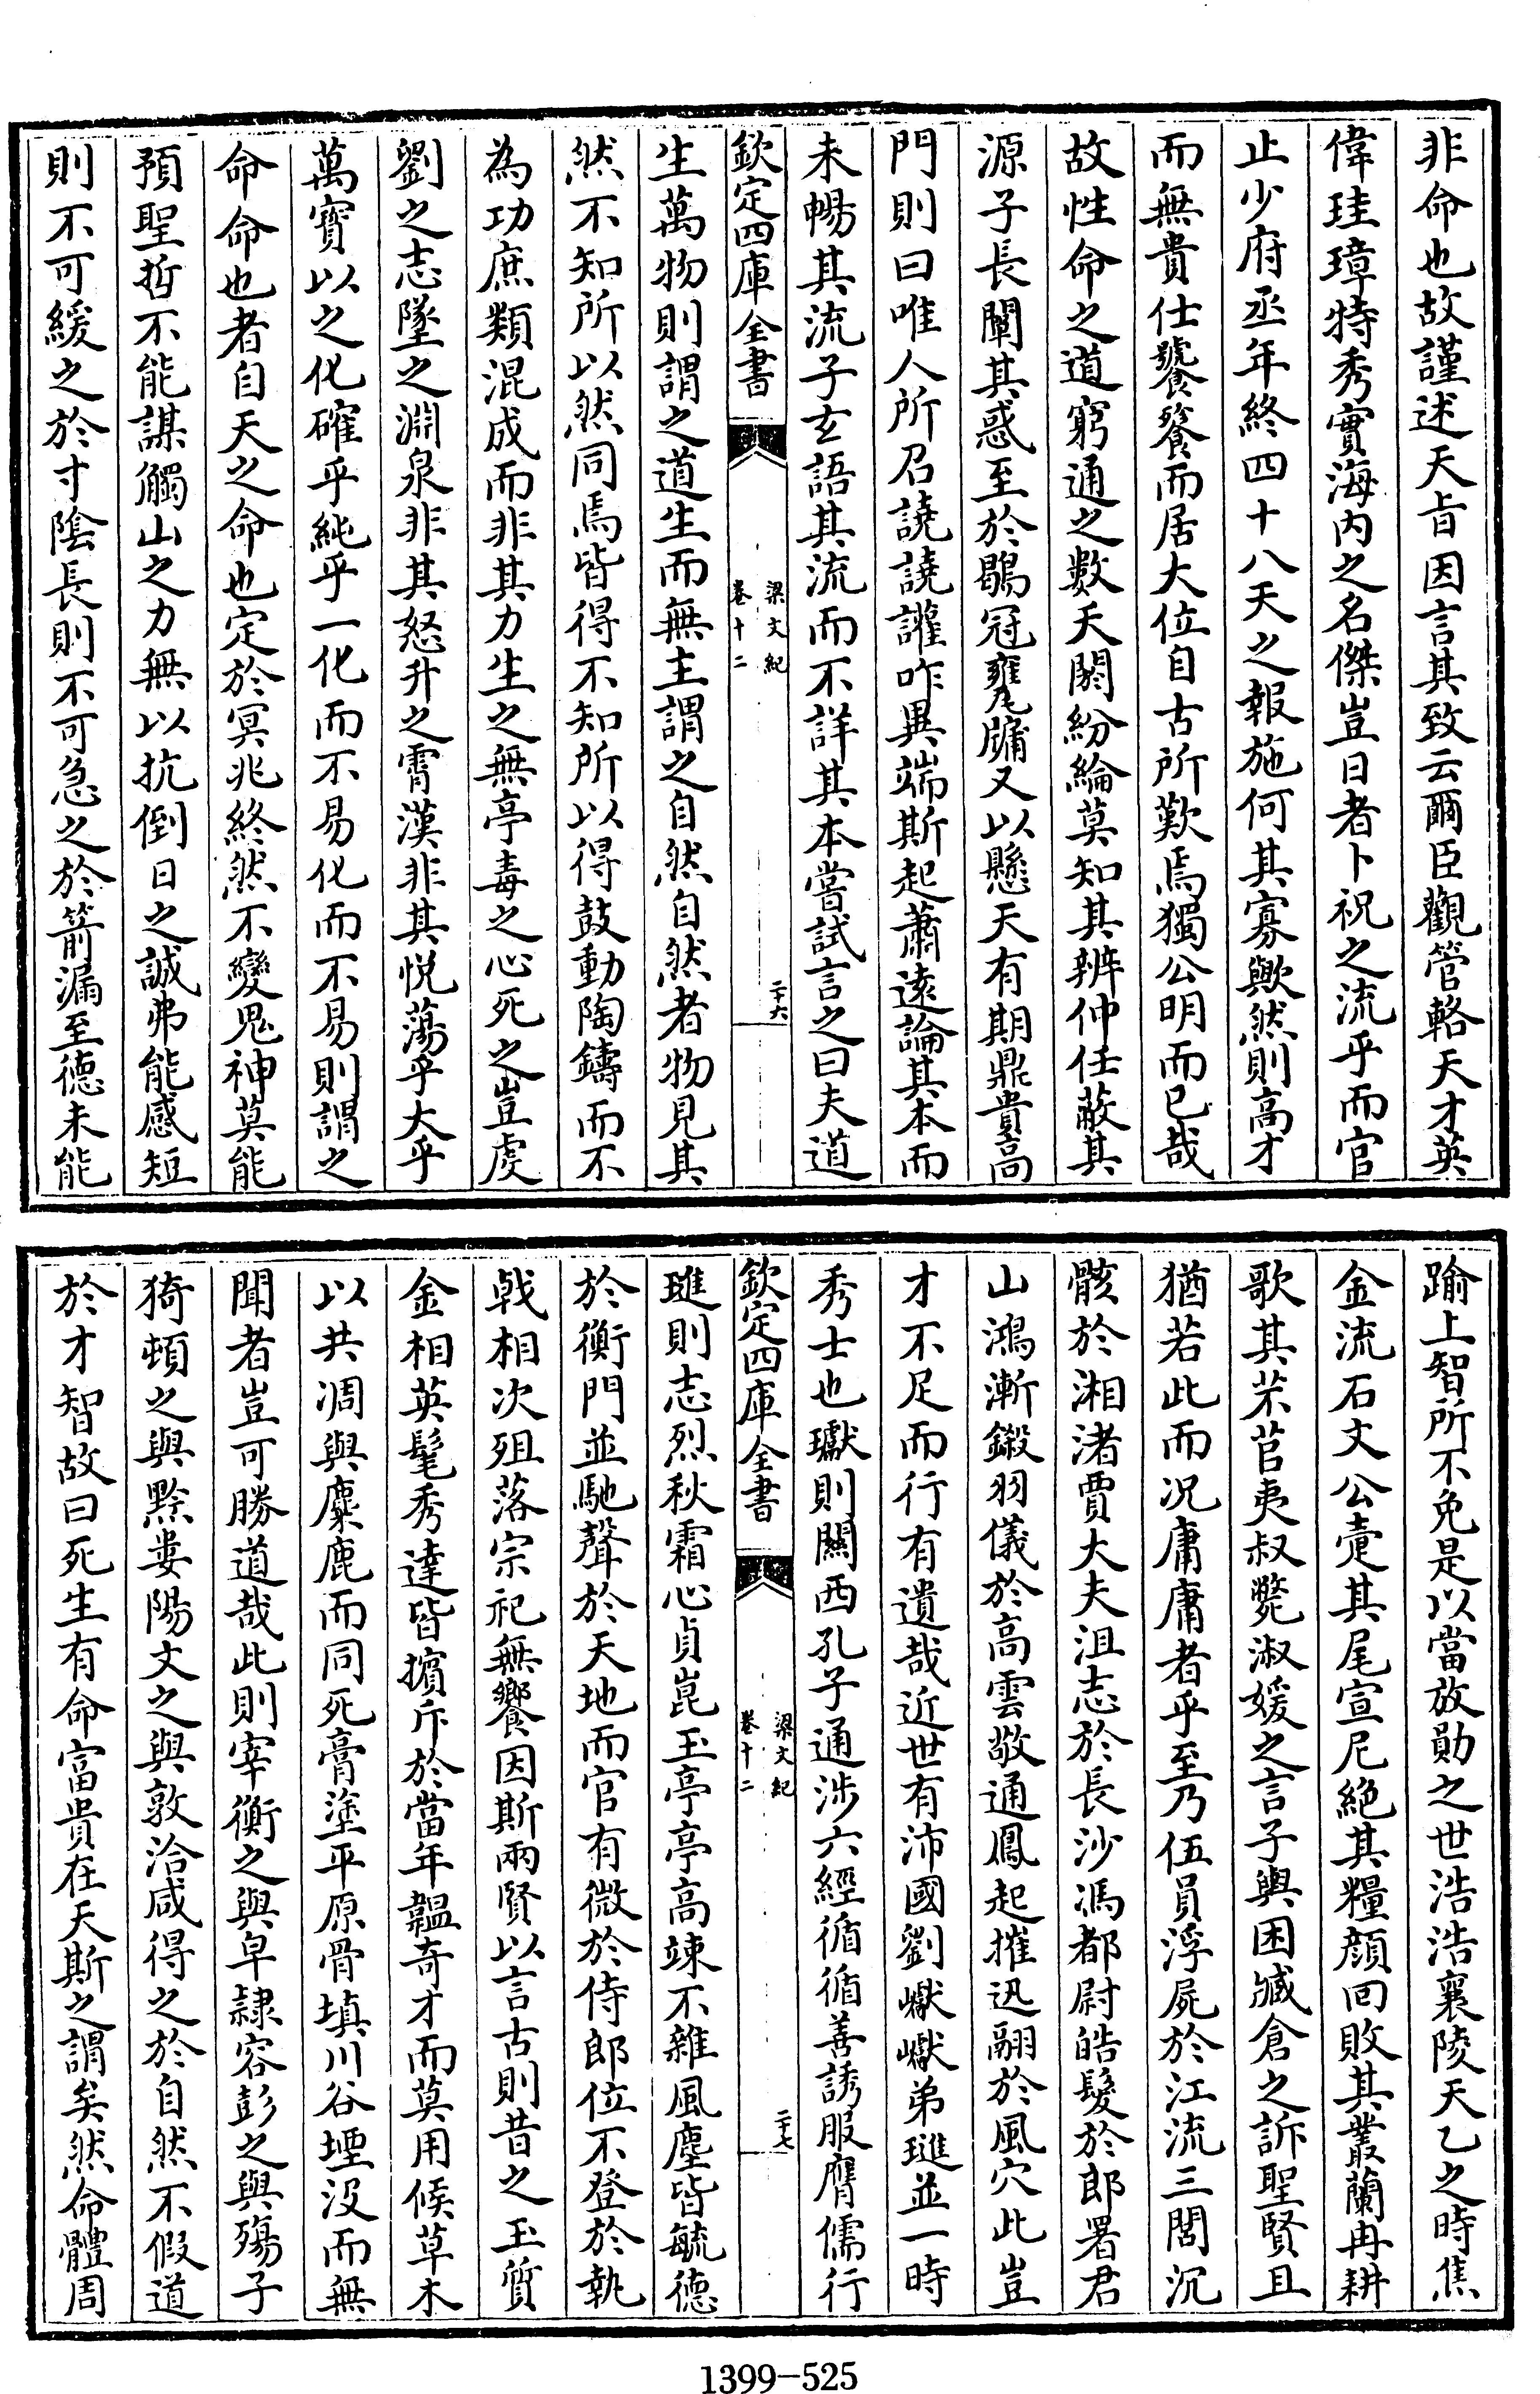 非命也故謹述天旨因言其致云爾臣觀管輅天才英
偉珪璋特秀實海内之名傑豈日者卜祝之流乎而官
止少府丞年終四十八天之報施何其寡歟然則高才
而無貴仕饕餮而居大位自古所歎焉獨公明而已哉
故性命之道窮通之數夭閼紛綸莫知其辨仲任蔽其
源子長闡其惑至於鶡冠甕牖又以懸天有期鼎貴高
門則曰唯人所召譊譊讙咋異端斯起蕭遠論其本而
未暢其流子玄語其流而不詳其本嘗試言之曰夫道
欽定四庫全書
梁文紀
卷十二
二十六
生萬物則謂之道生而無主謂之自然自然者物見其
然不知所以然同焉皆得不知所以得鼓動陶鑄而不
為功庶類混成而非其力生之無亭毒之心死之豈虔
劉之志墜之淵泉非其怒升之霄漢非其悦蕩乎大乎
萬寳以之化確乎純乎一化而不易化而不易則謂之
命命也者自天之命也定於冥兆終然不變鬼神莫能
預聖哲不能謀觸山之力無以抗倒日之誠弗能感短
則不可緩之於寸陰長則不可急之於箭漏至德未能
踰上智所不免是以當放勛之世浩浩襄陵天乙之時焦
金流石文公疐其尾宣尼絶其糧顔回敗其叢蘭冉耕
歌其芣苢夷叔斃淑媛之言子輿困臧倉之訴聖賢且
猶若此而况庸庸者乎至乃伍員浮屍於江流三閭沉
骸於湘渚賈大夫沮志於長沙馮都尉皓髪於郎署君
山鴻漸鎩羽儀於高雲敬通鳳起摧迅翮於風穴此豈
才不足而行有遺哉近世有沛國劉巘巘弟璡並一時
秀士也瓛則關西孔子通涉六經循循善誘服膺儒行
欽定四庫全書
梁文紀
卷十二
二十七
璡則志烈秋霜心貞崑玉亭亭高竦不雜風塵皆毓德
於衡門並馳聲於天地而官有微於侍郎位不登於執
戟相次殂落宗祀無饗因斯兩賢以言古則昔之玉質
金相英髦秀達皆擯斥於當年韞奇才而莫用候草木
以共凋與麋鹿而同死膏塗平原骨填川谷堙没而無
聞者豈可勝道哉此則宰衡之與皁隸容彭之與殤子
猗頓之與黔婁陽文之與敦洽咸得之於自然不假道
於才智故曰死生有命富貴在天斯之謂矣然命體周
1399-525